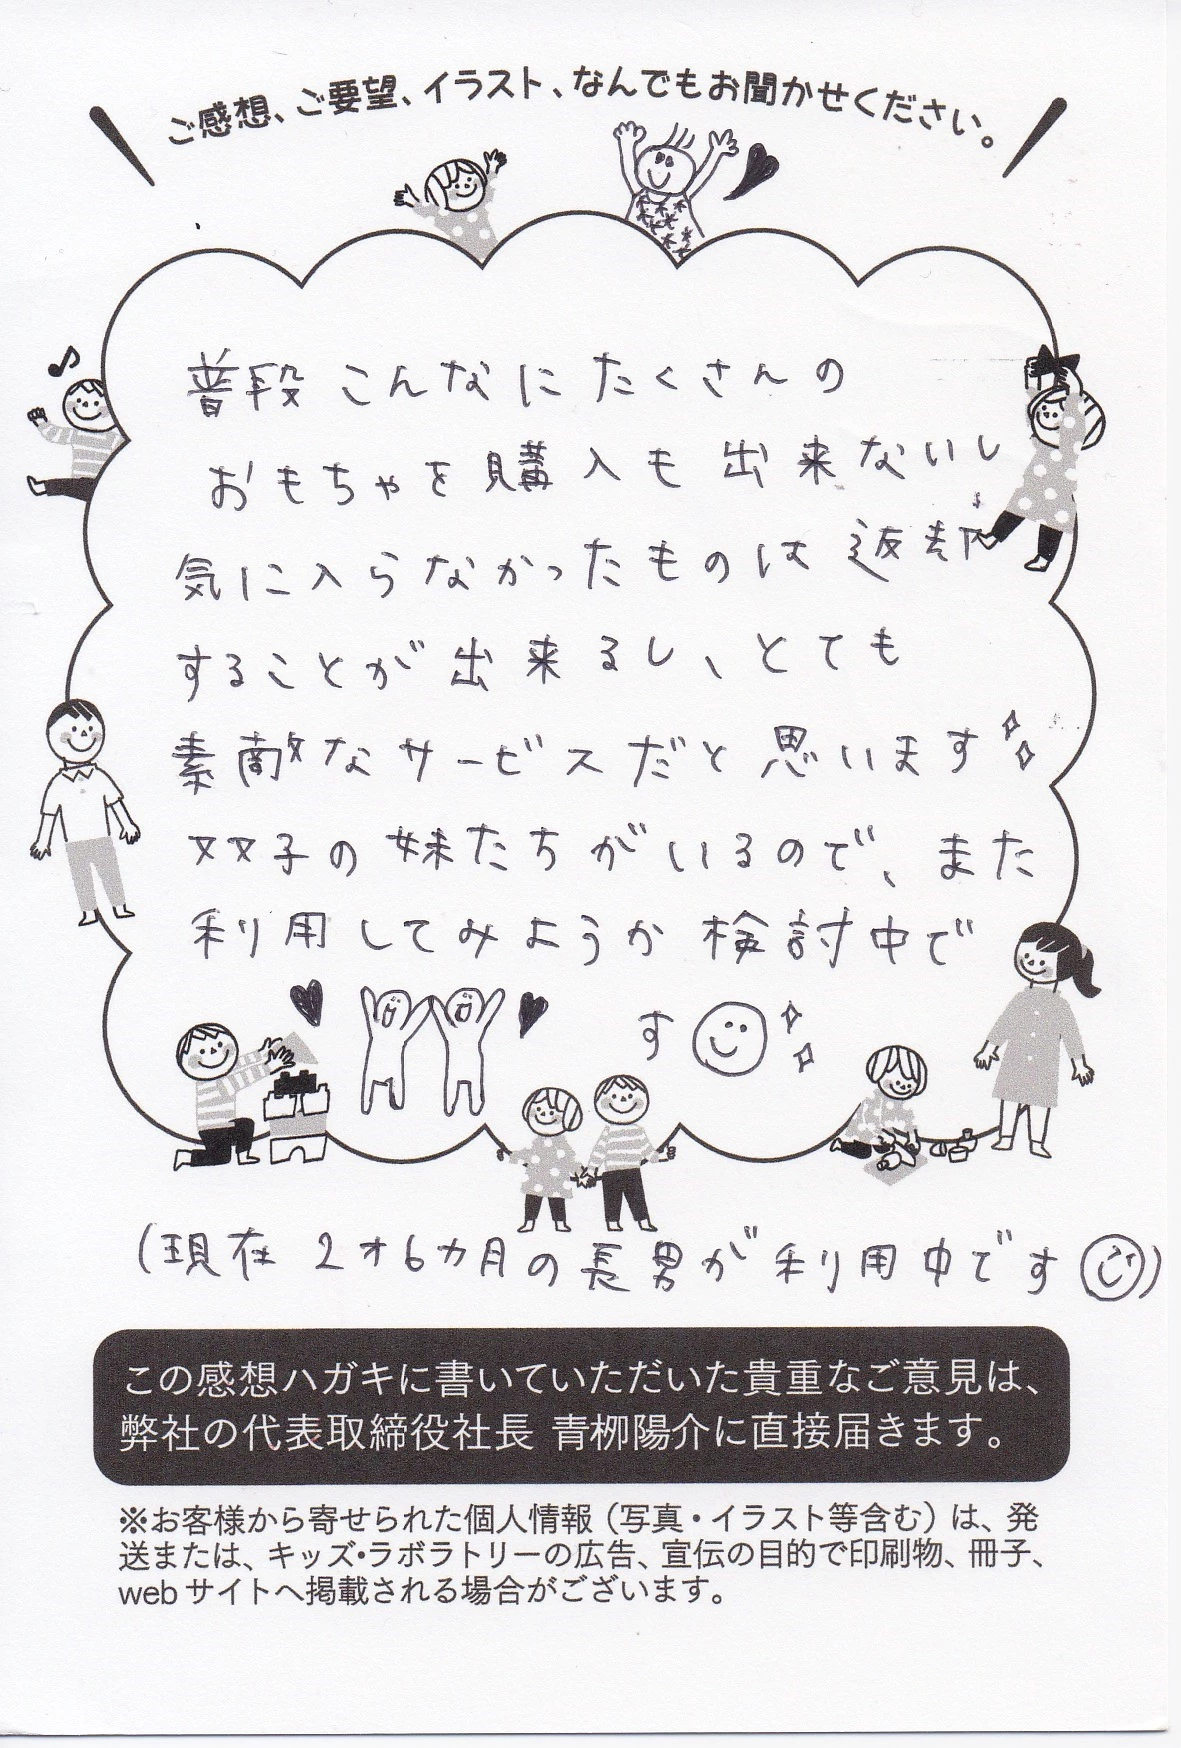 ご感想、ご要望、イラスト、なんでもお聞かせください。
普段こんなにたくさんの
おもちゃを購入も出来ないし
気に入らなかったものは返却
することが出来るし、とても
素敵なサービスだと思います
双子の妹たちがいるので、また
利用してみようか検討中で
す
(現在2才6カ月の長男が利用中です)
この感想ハガキに書いていただいた貴重なご意見は、
弊社の代表取締役社長 青栁陽介に直接届きます。
※お客様から寄せられた個人情報（写真・イラスト等含む）は、発
送または、キッズ・ラボラトリーの広告、宣伝の目的で印刷物、冊子、
webサイトへ掲載される場合がございます。